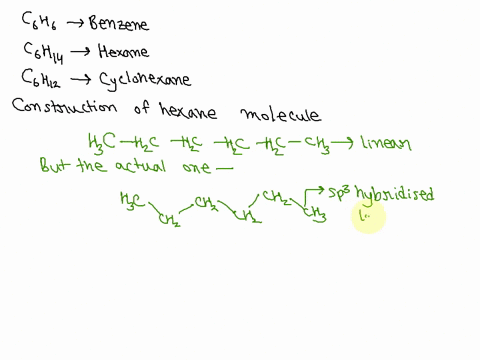 C₆H₆ → Benzene
C₆H₁₄ → Hexane
C₆H₁₂ → Cyclohexane
Construction of hexane molecule
H₃C — H₂C — H₂C — H₂C — H₂C — CH₃ → linear
But the actual one —
H₃C CH₂ CH₂ CH₂ CH₂ CH₃ → sp³ hybridised